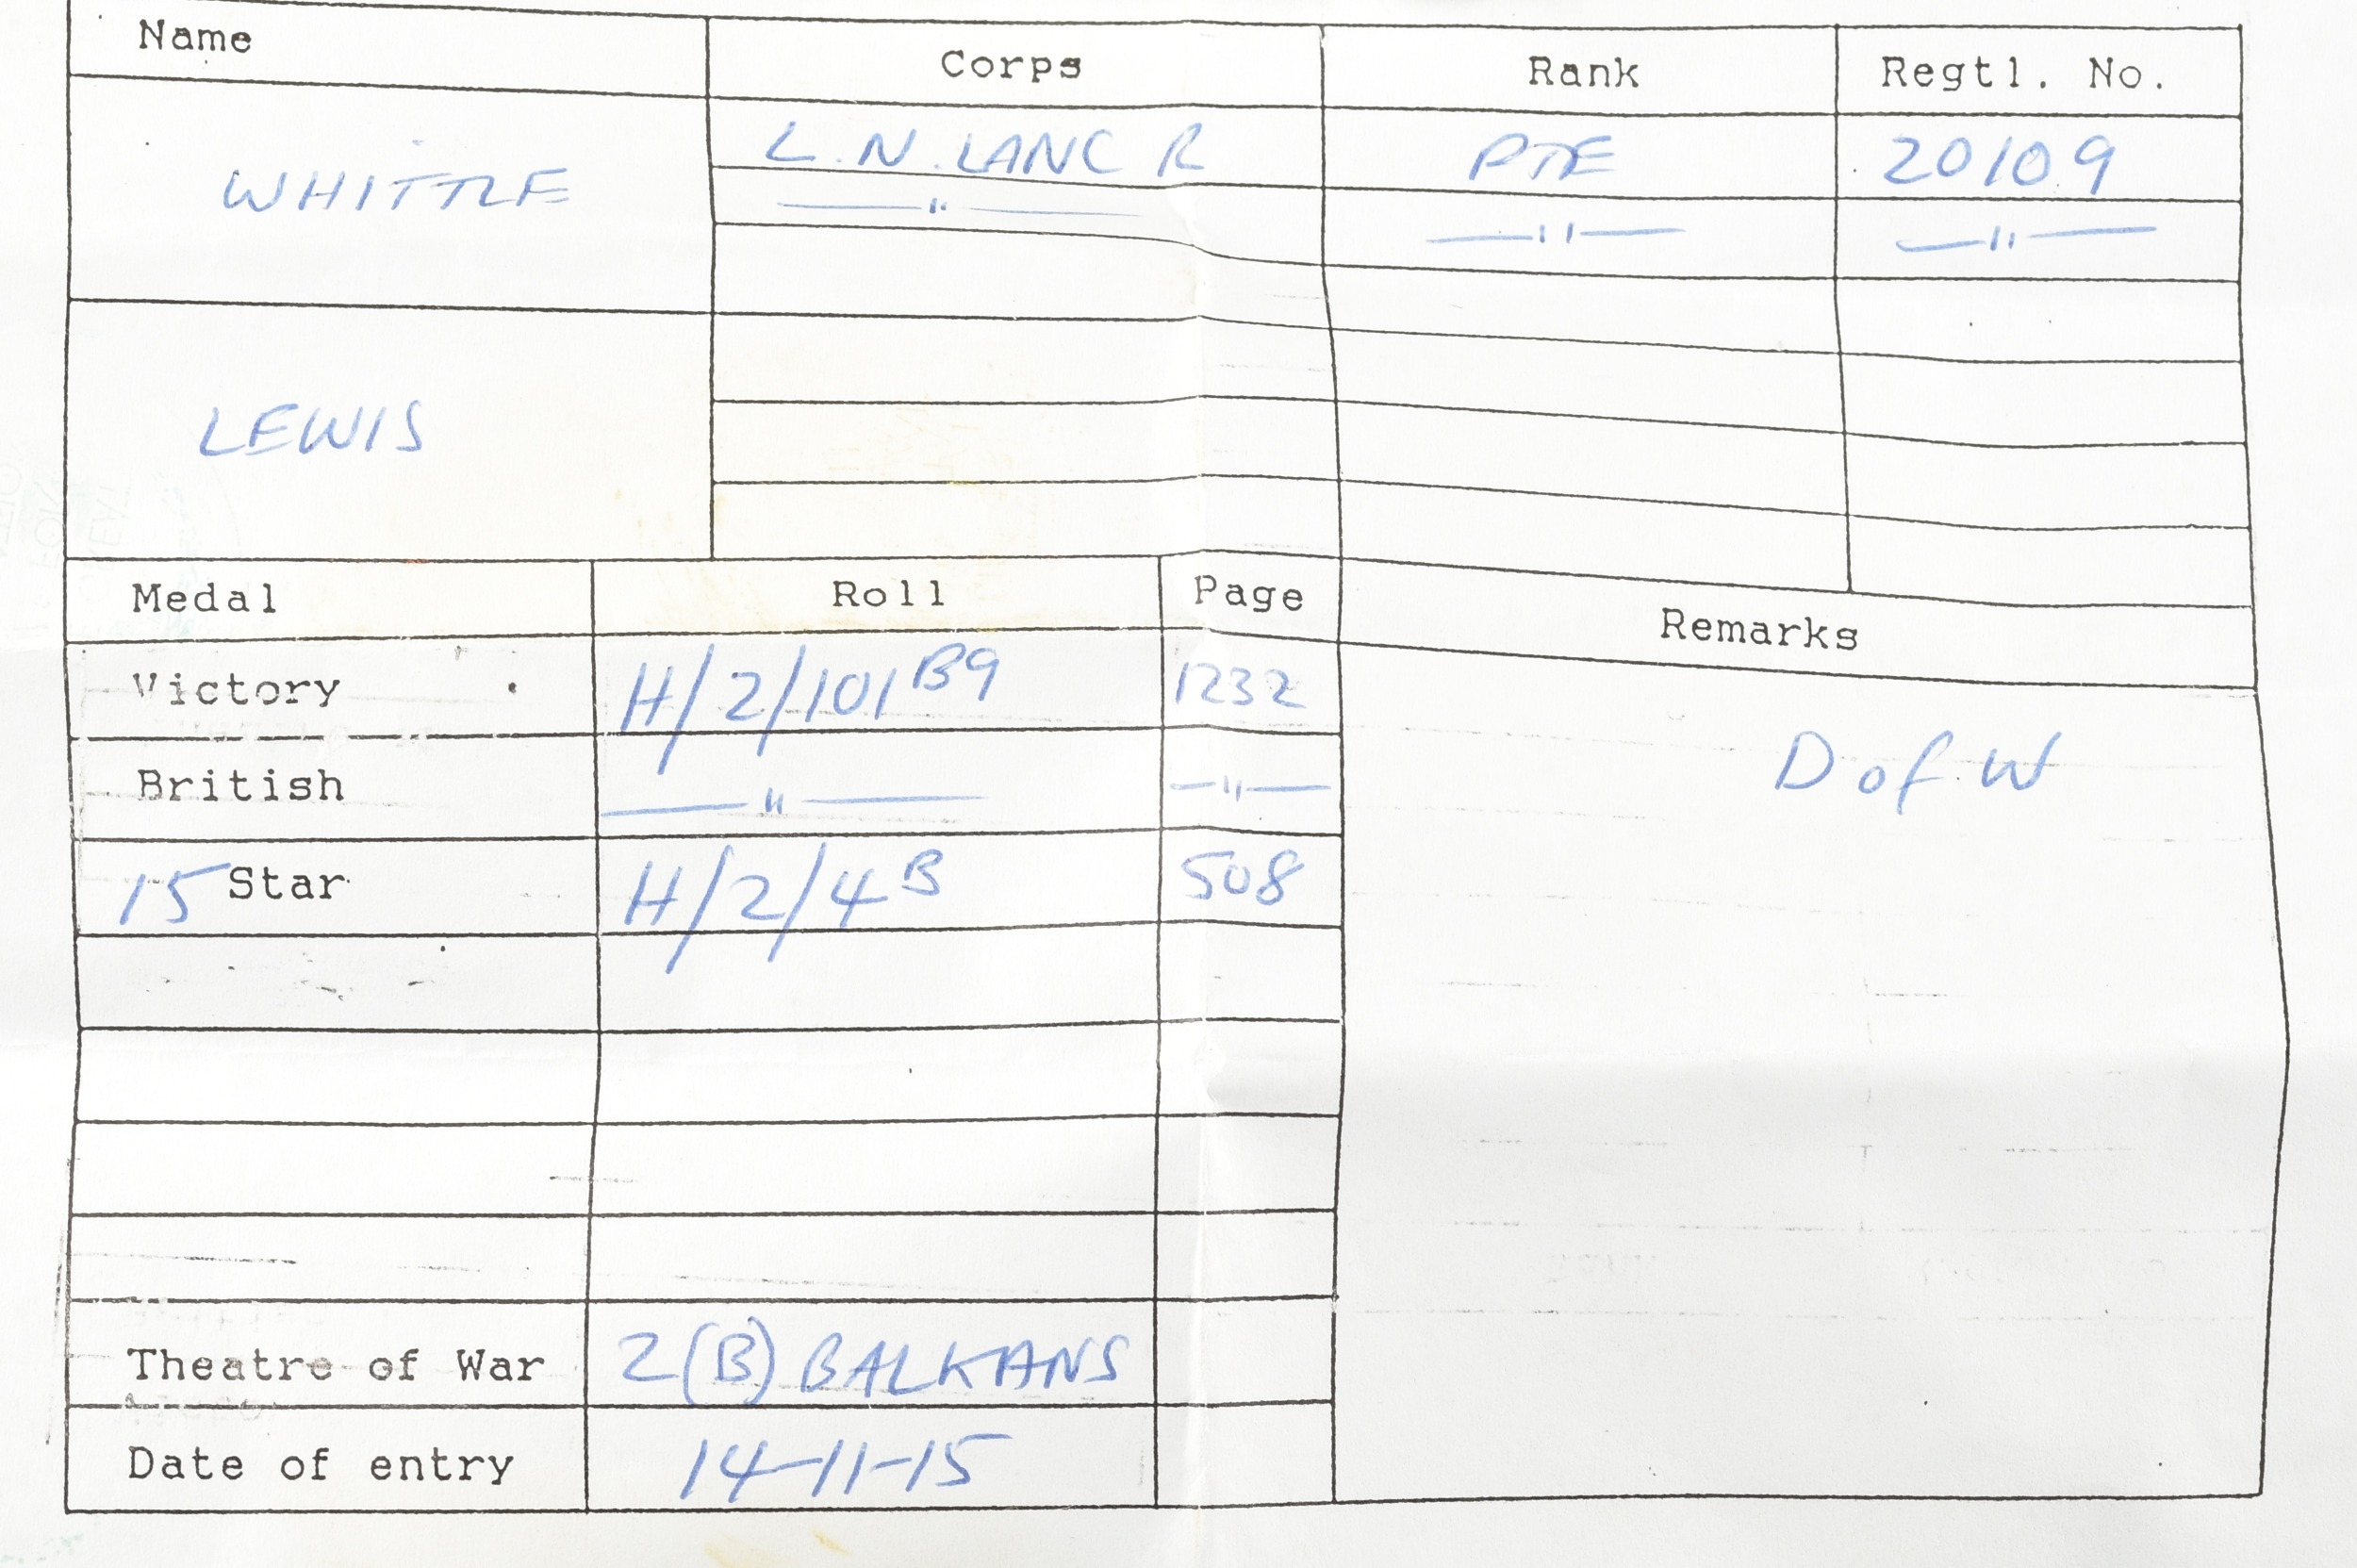 Name Corps Rank Regtl. No.
WHITTLE L.N.LANC R PTE 20109
—"— —"— —"—
LEWIS
Medal Roll Page Remarks
Victory H/2/101B9 1232
British —"— —"— D of W
15 Star H/2/4B 508
Theatre of War 2(B) BALKANS
Date of entry 14-11-15